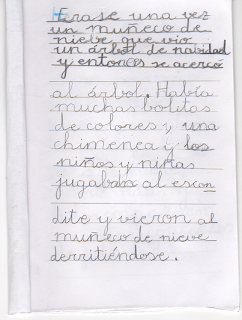 Erase una vez
un muñeco de
nieve que vio
un árbol de navidad
y entonces se acercó
al árbol. Había
muchas bolitas
de colores y una
chimenea y los
niños y niñas
jugaban al escon
dite y vieron al
muñeco de nieve
derritiéndose.